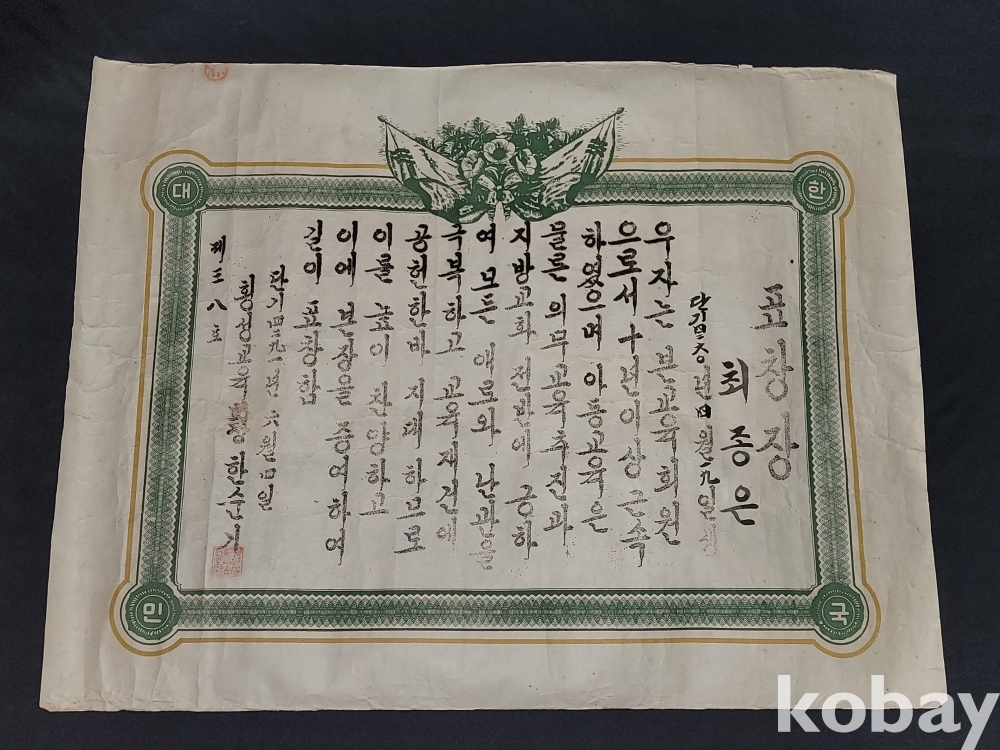 표창장
최종은
우자는 본교육회원
으로서 十년이상 근속
하였으며 아동교육은
물론 의무교육추진과
지방교화 전반에 긍하
여 모든 애로와 난관을
극복하고 교육재건에
공헌한바 지대 하므로
이를 높이 찬양하고
이에 본장을 증여하여
길이 표창함
단기四二九一년 六월四일
횡성교육 한순기
제三八호
대
한
민
국
kobay